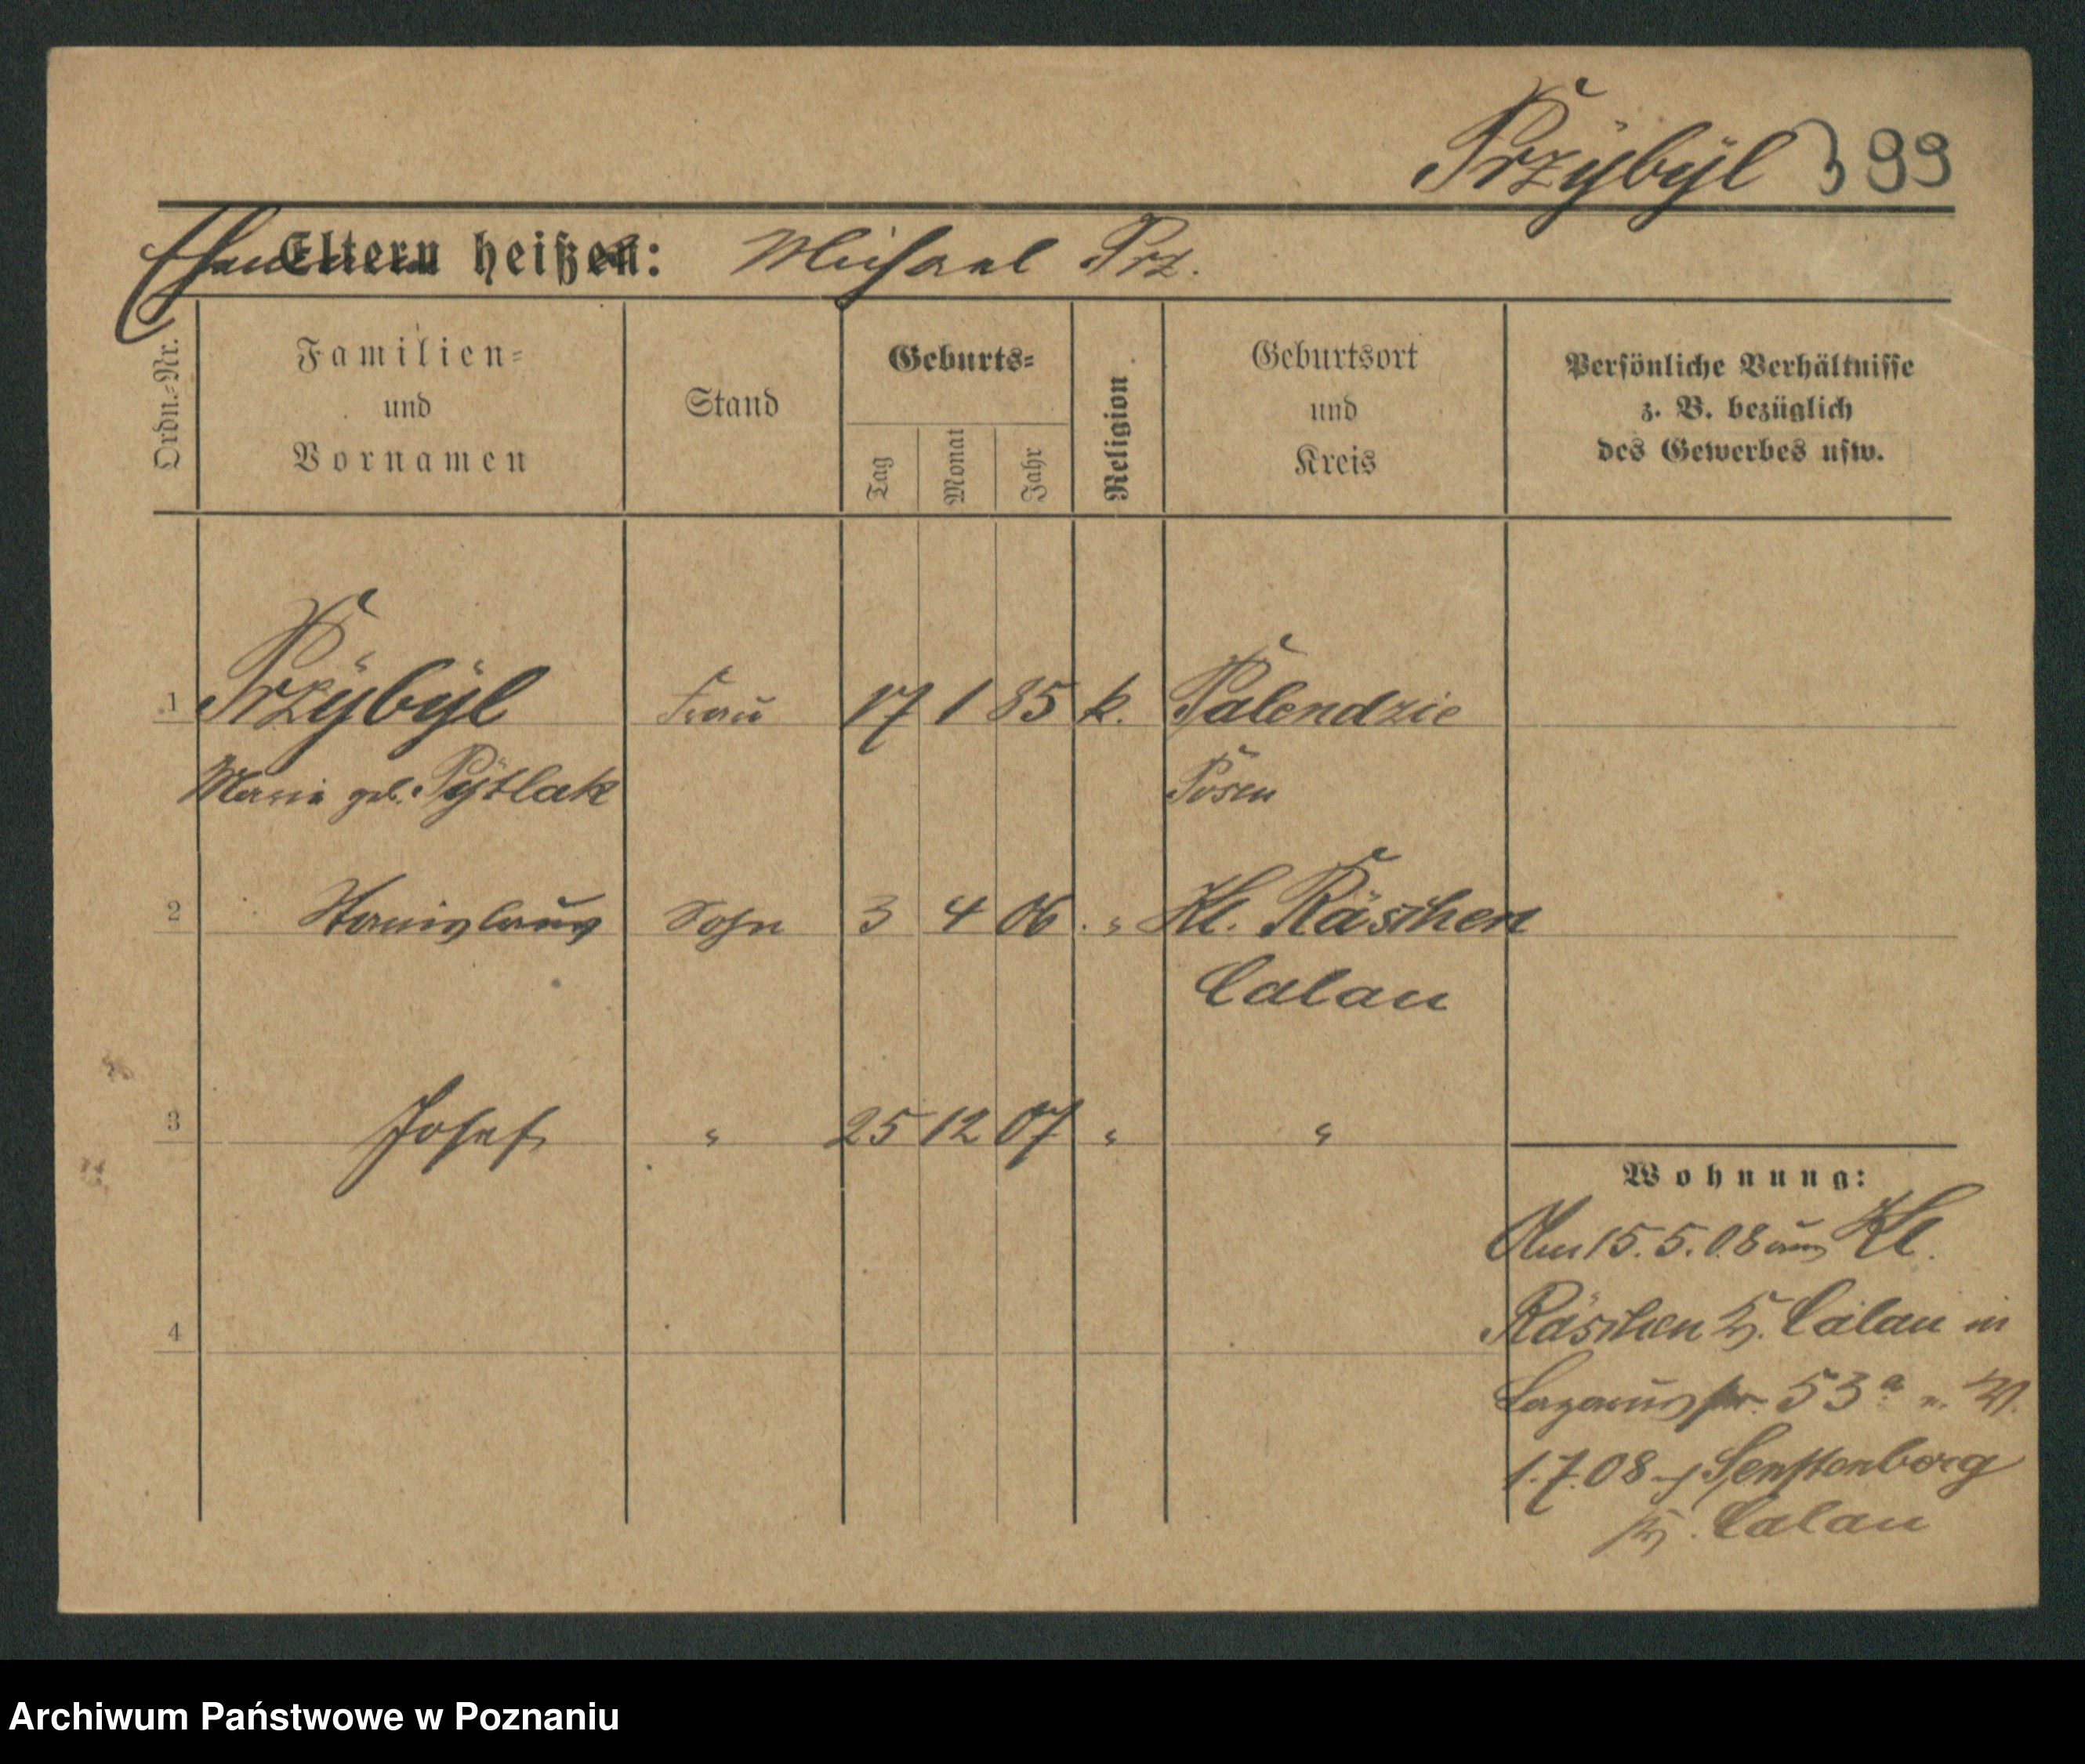 Przÿbÿl 399
Ehemann
Eltern heißen: Michael Prz.
Ordn.-Nr.
Familien-
und
Vornamen
Stand
Geburts-
Tag
Monat
Jahr
Religion
Geburtsort
und
Kreis
Persönliche Verhältnisse
z. B. bezüglich
des Gewerbes usw.
1 Przÿbÿl Frau 17 1 85 k. Palendzie
Marie geb. Pÿtlak Posen
2 Stanislaus Sohn 3 4 06 " Kl. Räschen
Calau
3 Josef " 25 12 07 " "
Wohnung:
Am 15.5.08 aus Kl.
Räschen Kr. Calau in
4
Lazarusstr. 53a
1.7.08 Senftenberg
Kr. Calau
Archiwum Państwowe w Poznaniu